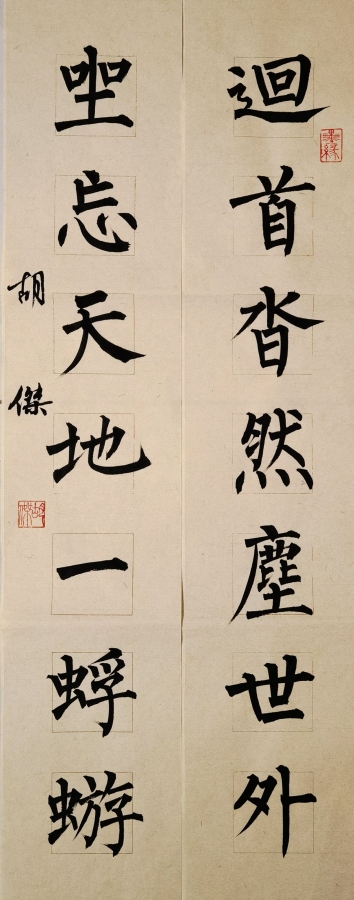 迴首沓然塵世外
坐忘天地一蜉蝣
胡傑